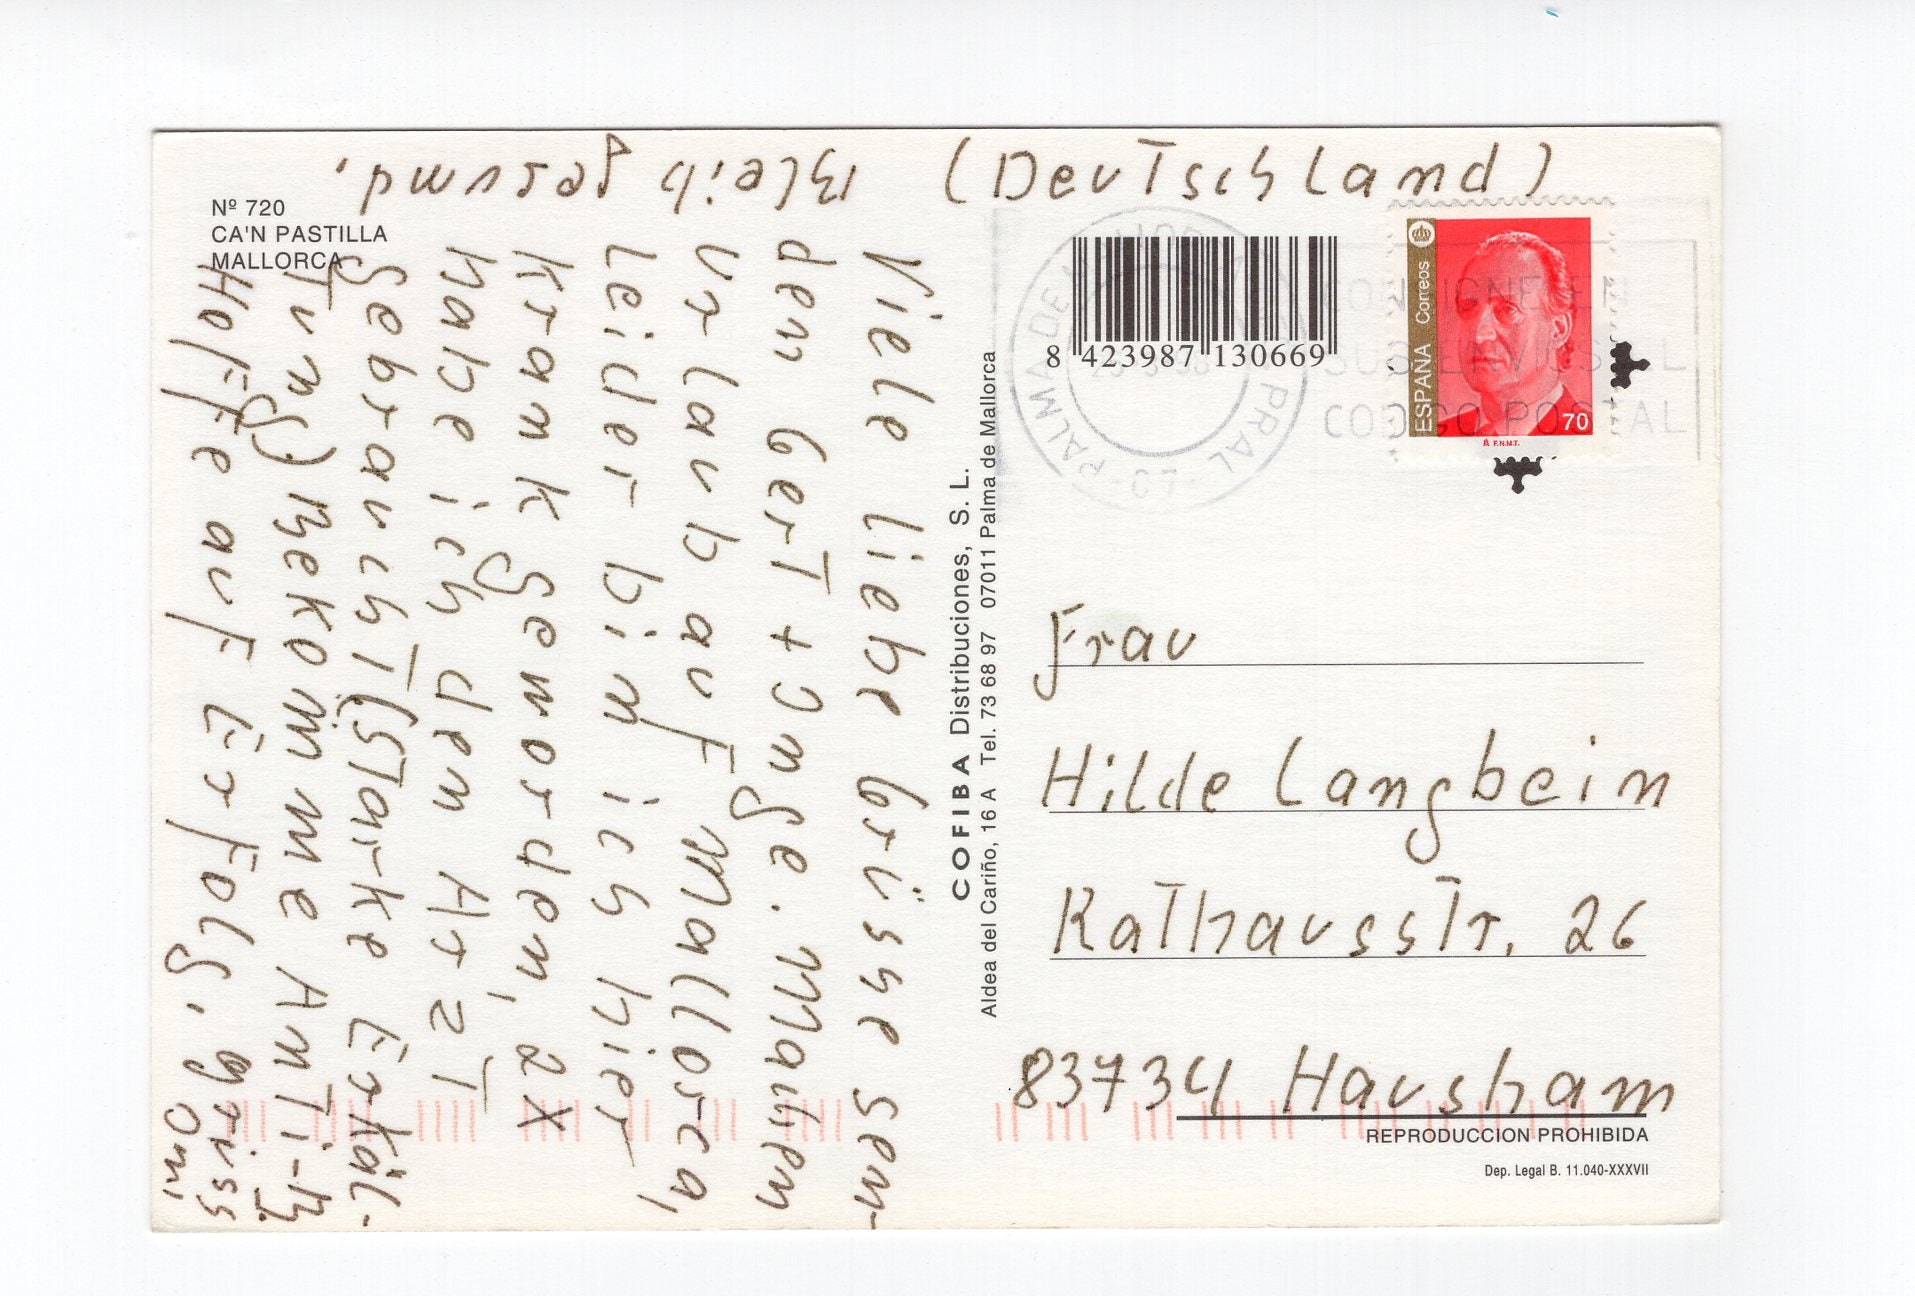 Nº 720
CA'N PASTILLA
MALLORCA
Viele liebe Grüsse sen-
den Gert + Inge. Machen
Urlaub auf Mallorca,
leider bin ich hier
krank geworden, 2x
habe ich den Arzt
gebraucht (starke Erkäl-
tung) Bekomme Anti-B.
Hoffe auf Erfolg, gruss
Omi
Bleib gesund.
COFIBA Distribuciones, S. L.
Aldea del Cariño, 16 A Tel. 73 68 97 07011 Palma de Mallorca
(Deutschland)
8 423987 130669
PALMA DE MALLORCA PRAL -07-
CONSIGNE EN
SUS ENVIOS EL
CODIGO POSTAL
ESPAÑA Correos
70
F.N.M.T.
Frau
Hilde Langbein
Rathausstr. 26
83734 Hausham
REPRODUCCION PROHIBIDA
Dep. Legal B. 11.040-XXXVII